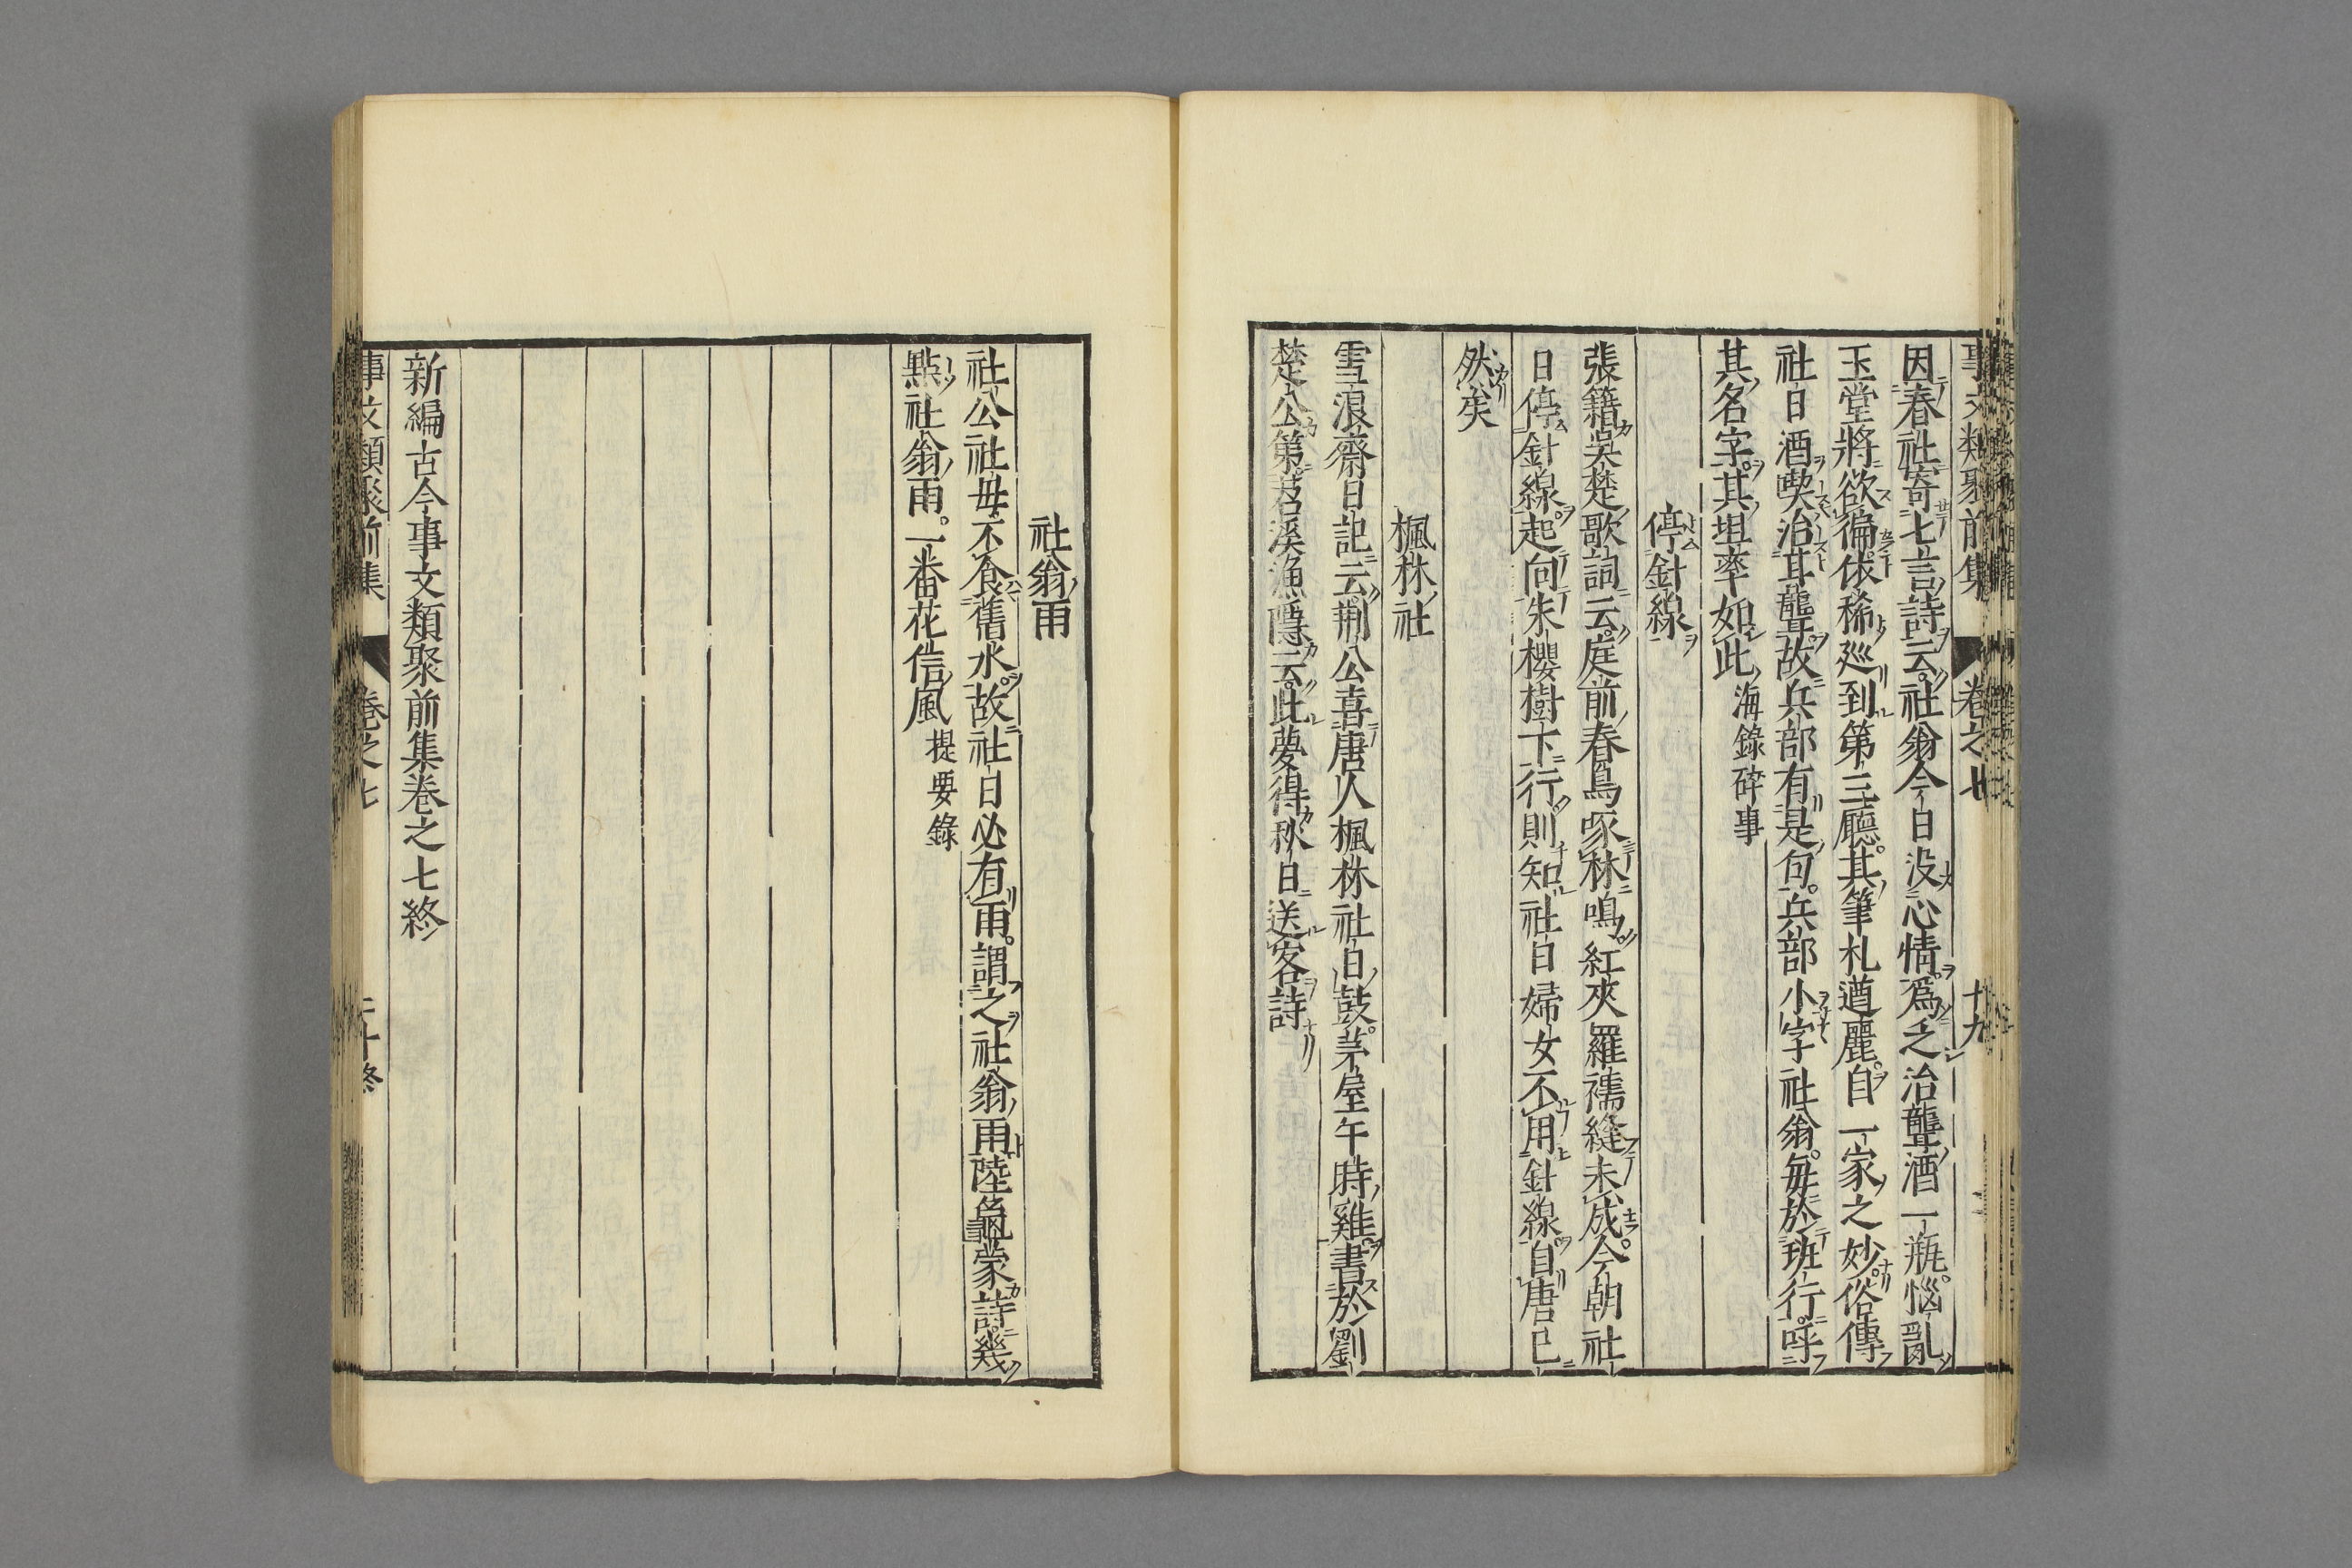 事文類聚前集 卷之七 十九
因春社寄七言詩云社翁今日没心情爲乏治聾酒一瓶惱亂
玉堂將欲徧依稀巡到第三廳其筆札遒麗自一家之妙俗傳
社日酒喫治耳聾故兵部有是句兵部小字社翁每於班行呼
其名字其坦率如此海錄碎事
停針線
張籍吳楚歌詞云庭前春鳥啄林鳴紅夾羅襦縫未成今朝社
日停針線起向朱櫻樹下行則知社日婦女不用針線自唐已
然矣
楓林社
雪浪齋日記云荆公喜唐人楓林社日鼓茅屋午時雞書於劉
楚公第茗溪漁隱云此夢得秋日送客詩
社翁雨
社公社毋不食舊水故社日必有雨謂之社翁雨陸龜蒙詩幾
點社翁雨一番花信風提要錄
新編古今事文類聚前集卷之七終
事文類聚前集 卷之七 二十終